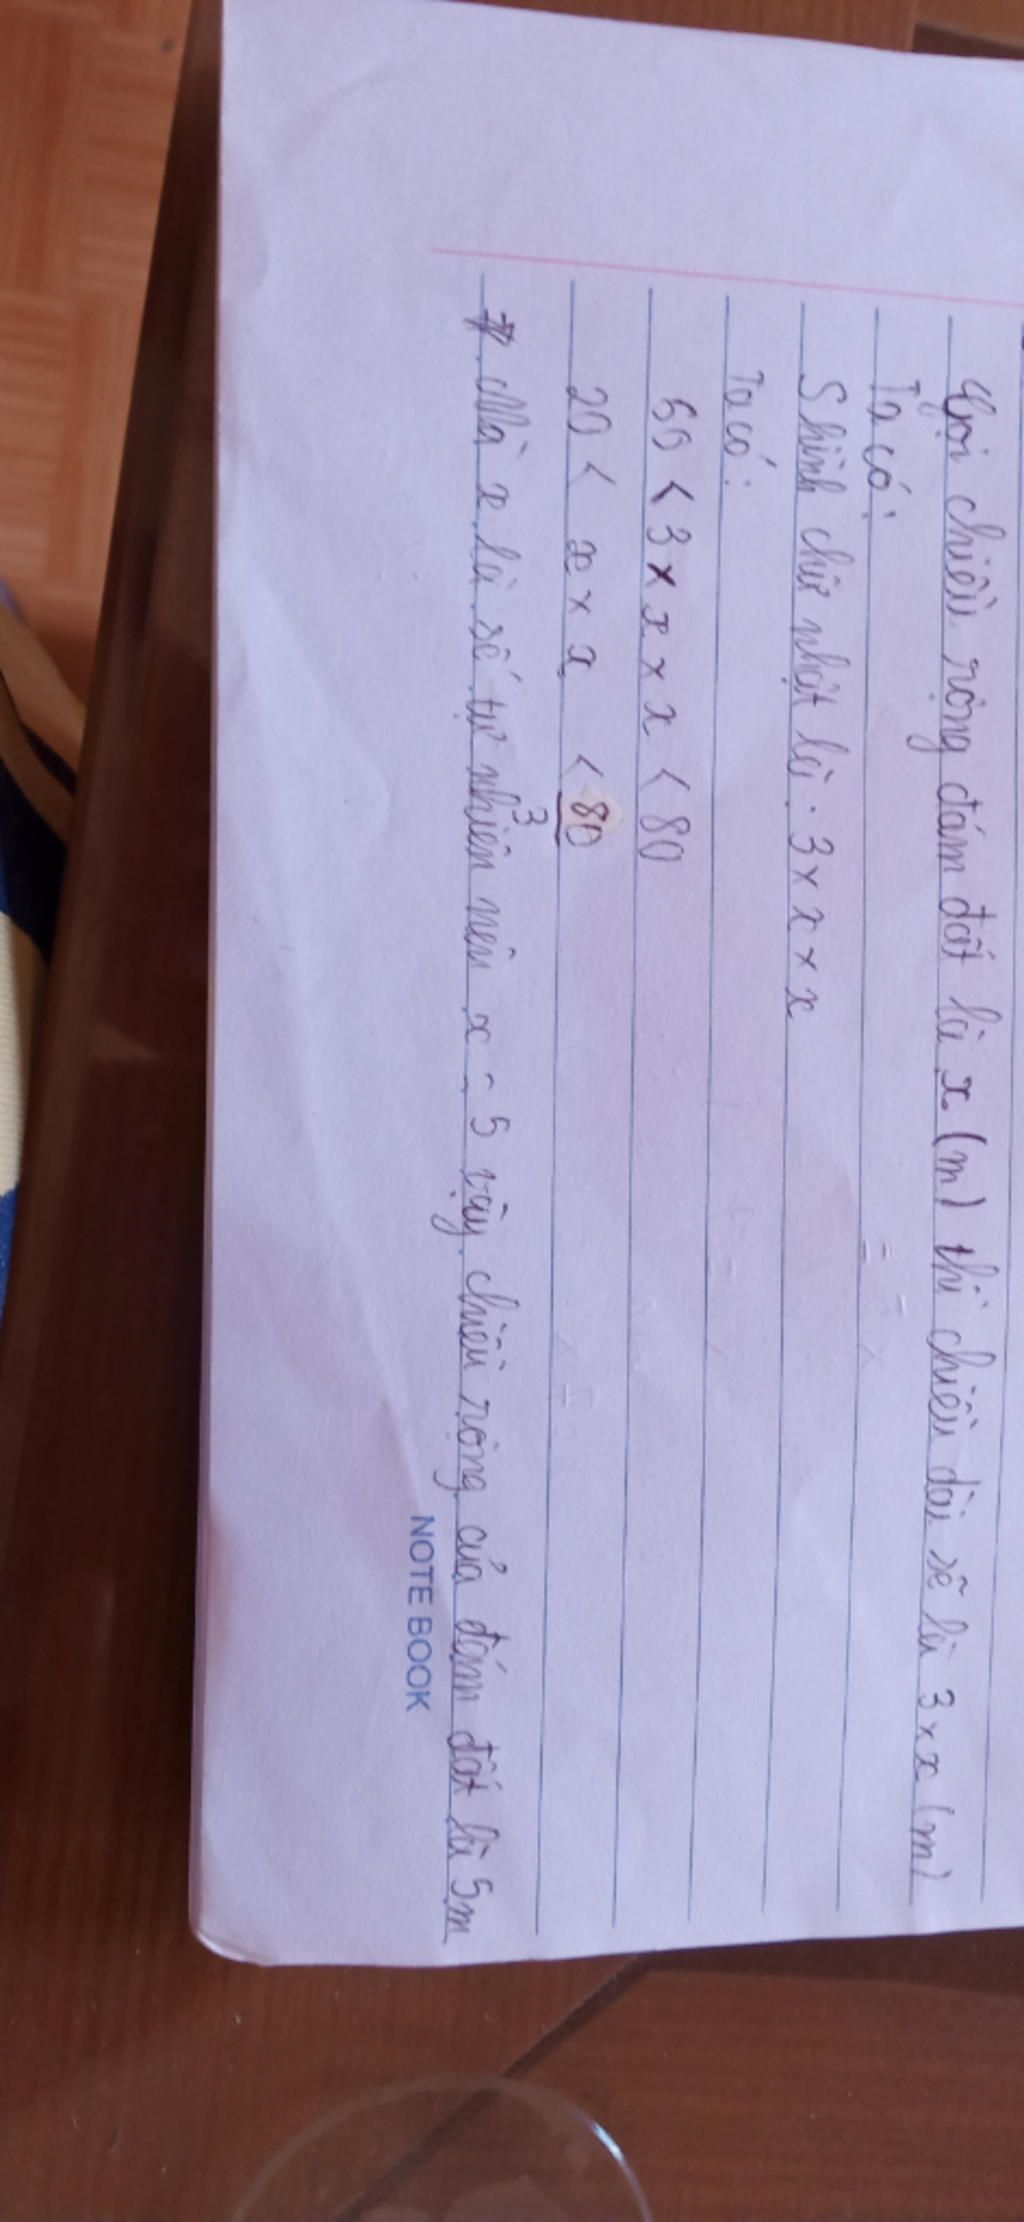 Gọi chiều rộng đám đất là x (m) thì chiều dài sẽ là 3 × x (m)
Ta có:
S hình chữ nhật là: 3 × x × x
Ta có:
60 < 3 × x × x < 80
20 < x × x < 80/3
Mà x là số tự nhiên nên x = 5 vậy chiều rộng của đám đất là 5m
NOTE BOOK